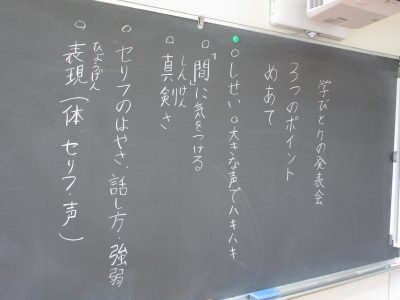 学びとりの発表会
3つのポイント
めあて
○しせい ○大きな声でハキハキ
○「間」に気をつける
○真剣さ
しんけん
○セリフのはやさ、話し方・強弱
○表現(体・セリフ・声)
ひょうげん